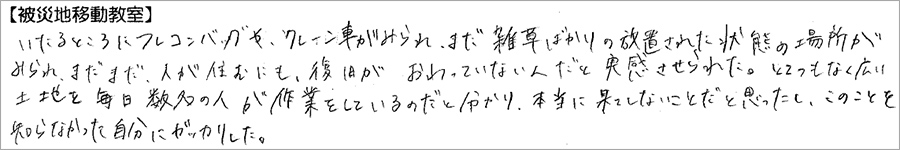 【被災地移動教室】
いたるところにフレコンバッグや、クレーン車がみられ、まだ雑草ばかりの放置された状態の場所が
みられ、まだまだ、人が住むにも、復旧がおわっていないんだと実感させられた。とてつもなく広い
土地を毎日数名の人が作業をしているのだと分かり、本当に果てしないことだと思ったし、このことを
知らなかった自分にガッカリした。